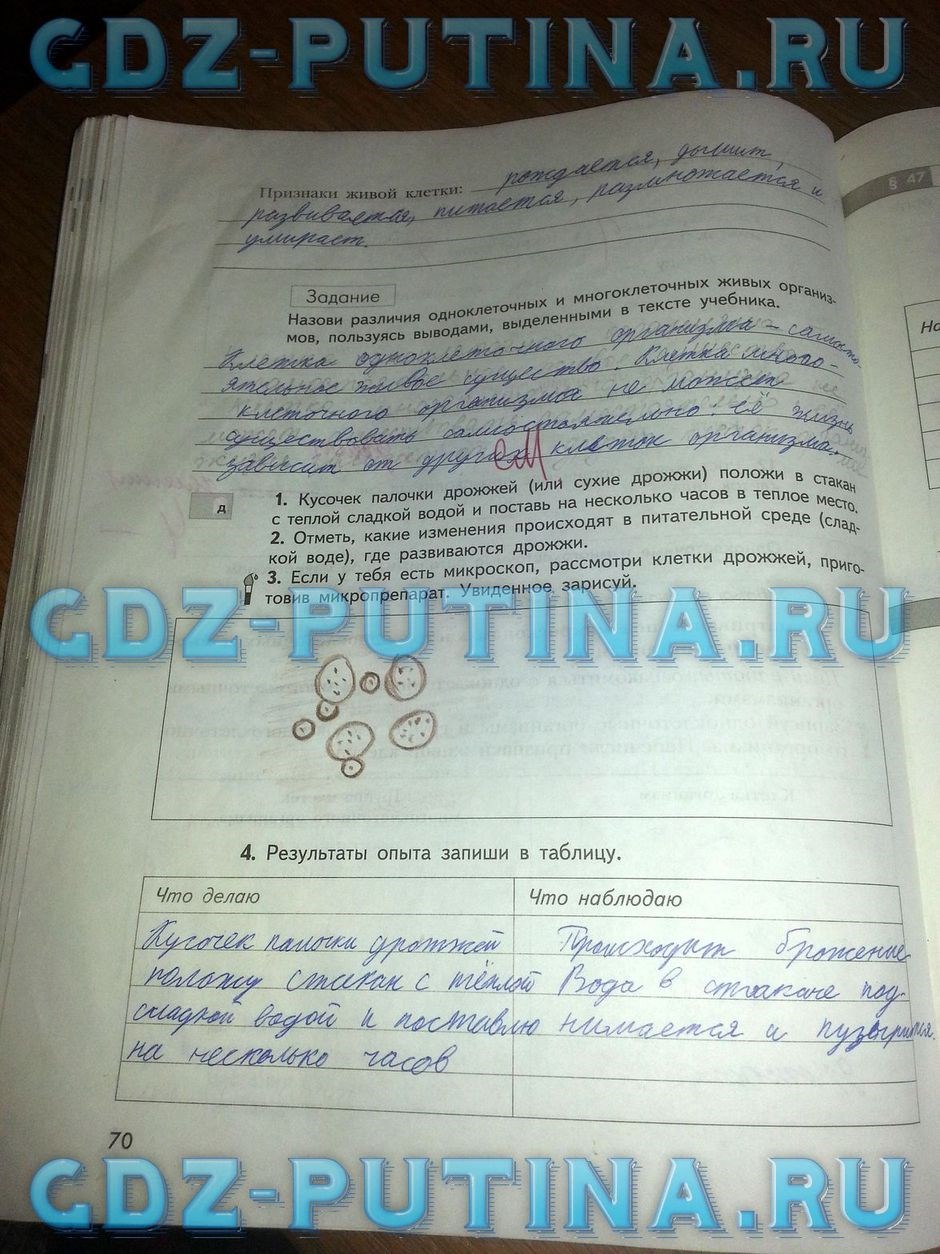 GDZ-PUTINA.RU
Признаки живой клетки: рождается, дышит,
развивается, питается, размножается и
умирает.
§ 47
Задание
Назови различия одноклеточных и многоклеточных живых организ-
мов, пользуясь выводами, выделенными в тексте учебника.
Клетка одноклеточного организма – самосто-
ятельное живое существо. Клетка много-
клеточного организма не может
существовать самостоятельно: её жизнь
зависит от других клеток организма.
см
На
д
1. Кусочек палочки дрожжей (или сухие дрожжи) положи в стакан
с теплой сладкой водой и поставь на несколько часов в теплое место.
2. Отметь, какие изменения происходят в питательной среде (слад-
кой воде), где развиваются дрожжи.
3. Если у тебя есть микроскоп, рассмотри клетки дрожжей, приго-
товив микропрепарат. Увиденное зарисуй.
GDZ-PUTINA.RU
4. Результаты опыта запиши в таблицу.
Что делаю
Что наблюдаю
Кусочек палочки дрожжей
положу стакан с тёплой
сладкой водой и поставлю
на несколько часов
Происходит брожение.
Вода в стакане под-
нимается и пузырится.
70
GDZ-PUTINA.RU